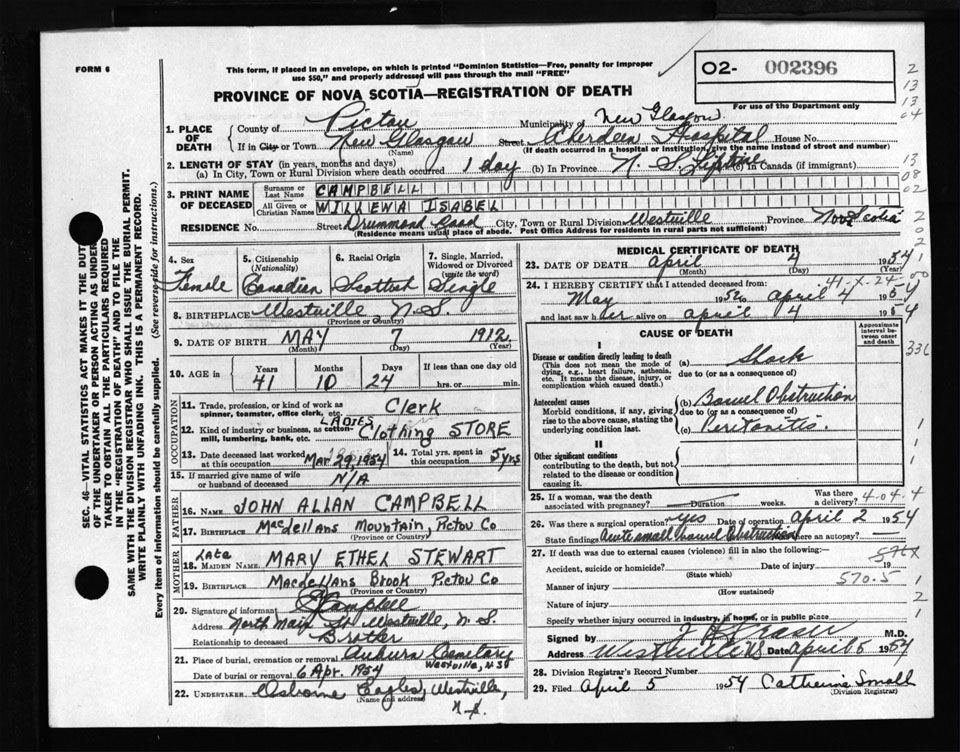 FORM 6
This form, if placed in an envelope, on which is printed "Dominion Statistics—Free, penalty for improper
use $50," and properly addressed will pass through the mail "FREE"
PROVINCE OF NOVA SCOTIA—REGISTRATION OF DEATH
O2- 002396
For use of the Department only
1. PLACE OF DEATH
County of Pictou Municipality of New Glasgow
If in City or Town New Glasgow Street Aberdeen Hospital House No.
(Name) (If death occurred in a hospital or institution, give the name instead of street and number)
2. LENGTH OF STAY (in years, months and days)
(a) In City, Town or Rural Division where death occurred 1 day (b) In Province N. S. Lifetime (c) In Canada (if immigrant)
3. PRINT NAME OF DECEASED
Surname or Last Name CAMPBELL
All Given or Christian Names WILLENA ISABEL
RESIDENCE No. Street Drummond Road City, Town or Rural Division Westville Province Nova Scotia
(Residence means usual place of abode. Post Office Address for residents in rural parts not sufficient)
4. Sex Female
5. Citizenship (Nationality) Canadian
6. Racial Origin Scottish
7. Single, Married, Widowed or Divorced (write the word) Single
8. BIRTHPLACE Westville N.S.
(Province or Country)
9. DATE OF BIRTH MAY 7 1912
(Month) (Day) (Year)
10. AGE in Years 41 Months 10 Days 24 If less than one day old hrs. or min.
OCCUPATION
11. Trade, profession, or kind of work as spinner, teamster, office clerk, etc. Clerk
12. Kind of industry or business, as cotton-mill, lumbering, bank, etc. LADIES Clothing STORE
13. Date deceased last worked at this occupation Mar 29, 1954
14. Total yrs. spent in this occupation 5 yrs
15. If married give name of wife or husband of deceased N/A
FATHER
16. NAME JOHN ALLAN CAMPBELL
17. BIRTHPLACE MacLellans Mountain, Pictou Co
(Province or Country)
MOTHER
18. MAIDEN NAME Late MARY ETHEL STEWART
19. BIRTHPLACE MacLellans Brook Pictou Co
(Province or Country)
20. Signature of informant Campbell
Address North Main St Westville, N. S.
Relationship to deceased Brother
21. Place of burial, cremation or removal Auburn Cemetary Westville, NS
Date of burial or removal 6 Apr. 1954
22. UNDERTAKER Osborne Eagles, Westville, N.S.
(Name and address)
MEDICAL CERTIFICATE OF DEATH
23. DATE OF DEATH April 4 1954
(Month) (Day) (Year)
41-X-24
24. I HEREBY CERTIFY that I attended deceased from:
May 1952 to April 4 1954
and last saw her alive on April 4 1954
CAUSE OF DEATH
Approximate interval between onset and death
I
Disease or condition directly leading to death
(This does not mean the mode of dying, e.g., heart failure, asthenia, etc. It means the disease, injury, or complication which caused death.)
(a) Shock
due to (or as a consequence of)
Antecedent causes
Morbid conditions, if any, giving rise to the above cause, stating the underlying condition last.
(b) Bowel Obstruction
due to (or as a consequence of)
(c) Peritonitis.
II
Other significant conditions
contributing to the death, but not related to the disease or condition causing it.
25. If a woman, was the death associated with pregnancy? Duration weeks. Was there a delivery?
4-04-4
26. Was there a surgical operation? yes Date of operation April 2 1954
State findings Acute small bowel Obstruction Was there an autopsy?
27. If death was due to external causes (violence) fill in also the following:—
Accident, suicide or homicide? Date of injury 19
(State which)
570.5
Manner of injury
(How sustained)
Nature of injury
Specify whether injury occurred in industry, in home, or in public place
Signed by M.D.
Address Westville NS Date April 6 1954
28. Division Registrar's Record Number
29. Filed April 5 1954 Catherine Small
(Division Registrar)
SEC. 46—VITAL STATISTICS ACT MAKES IT THE DUTY
OF THE UNDERTAKER OR PERSON ACTING AS UNDER-
TAKER TO OBTAIN ALL THE PARTICULARS REQUIRED
IN THE "REGISTRATION OF DEATH" AND TO FILE THE
SAME WITH THE DIVISION REGISTRAR WHO SHALL ISSUE THE BURIAL PERMIT.
WRITE PLAINLY WITH UNFADING INK. THIS IS A PERMANENT RECORD.
Every item of information should be carefully supplied. (See reverse side for instructions.)
2
13
13
04
13
08
02